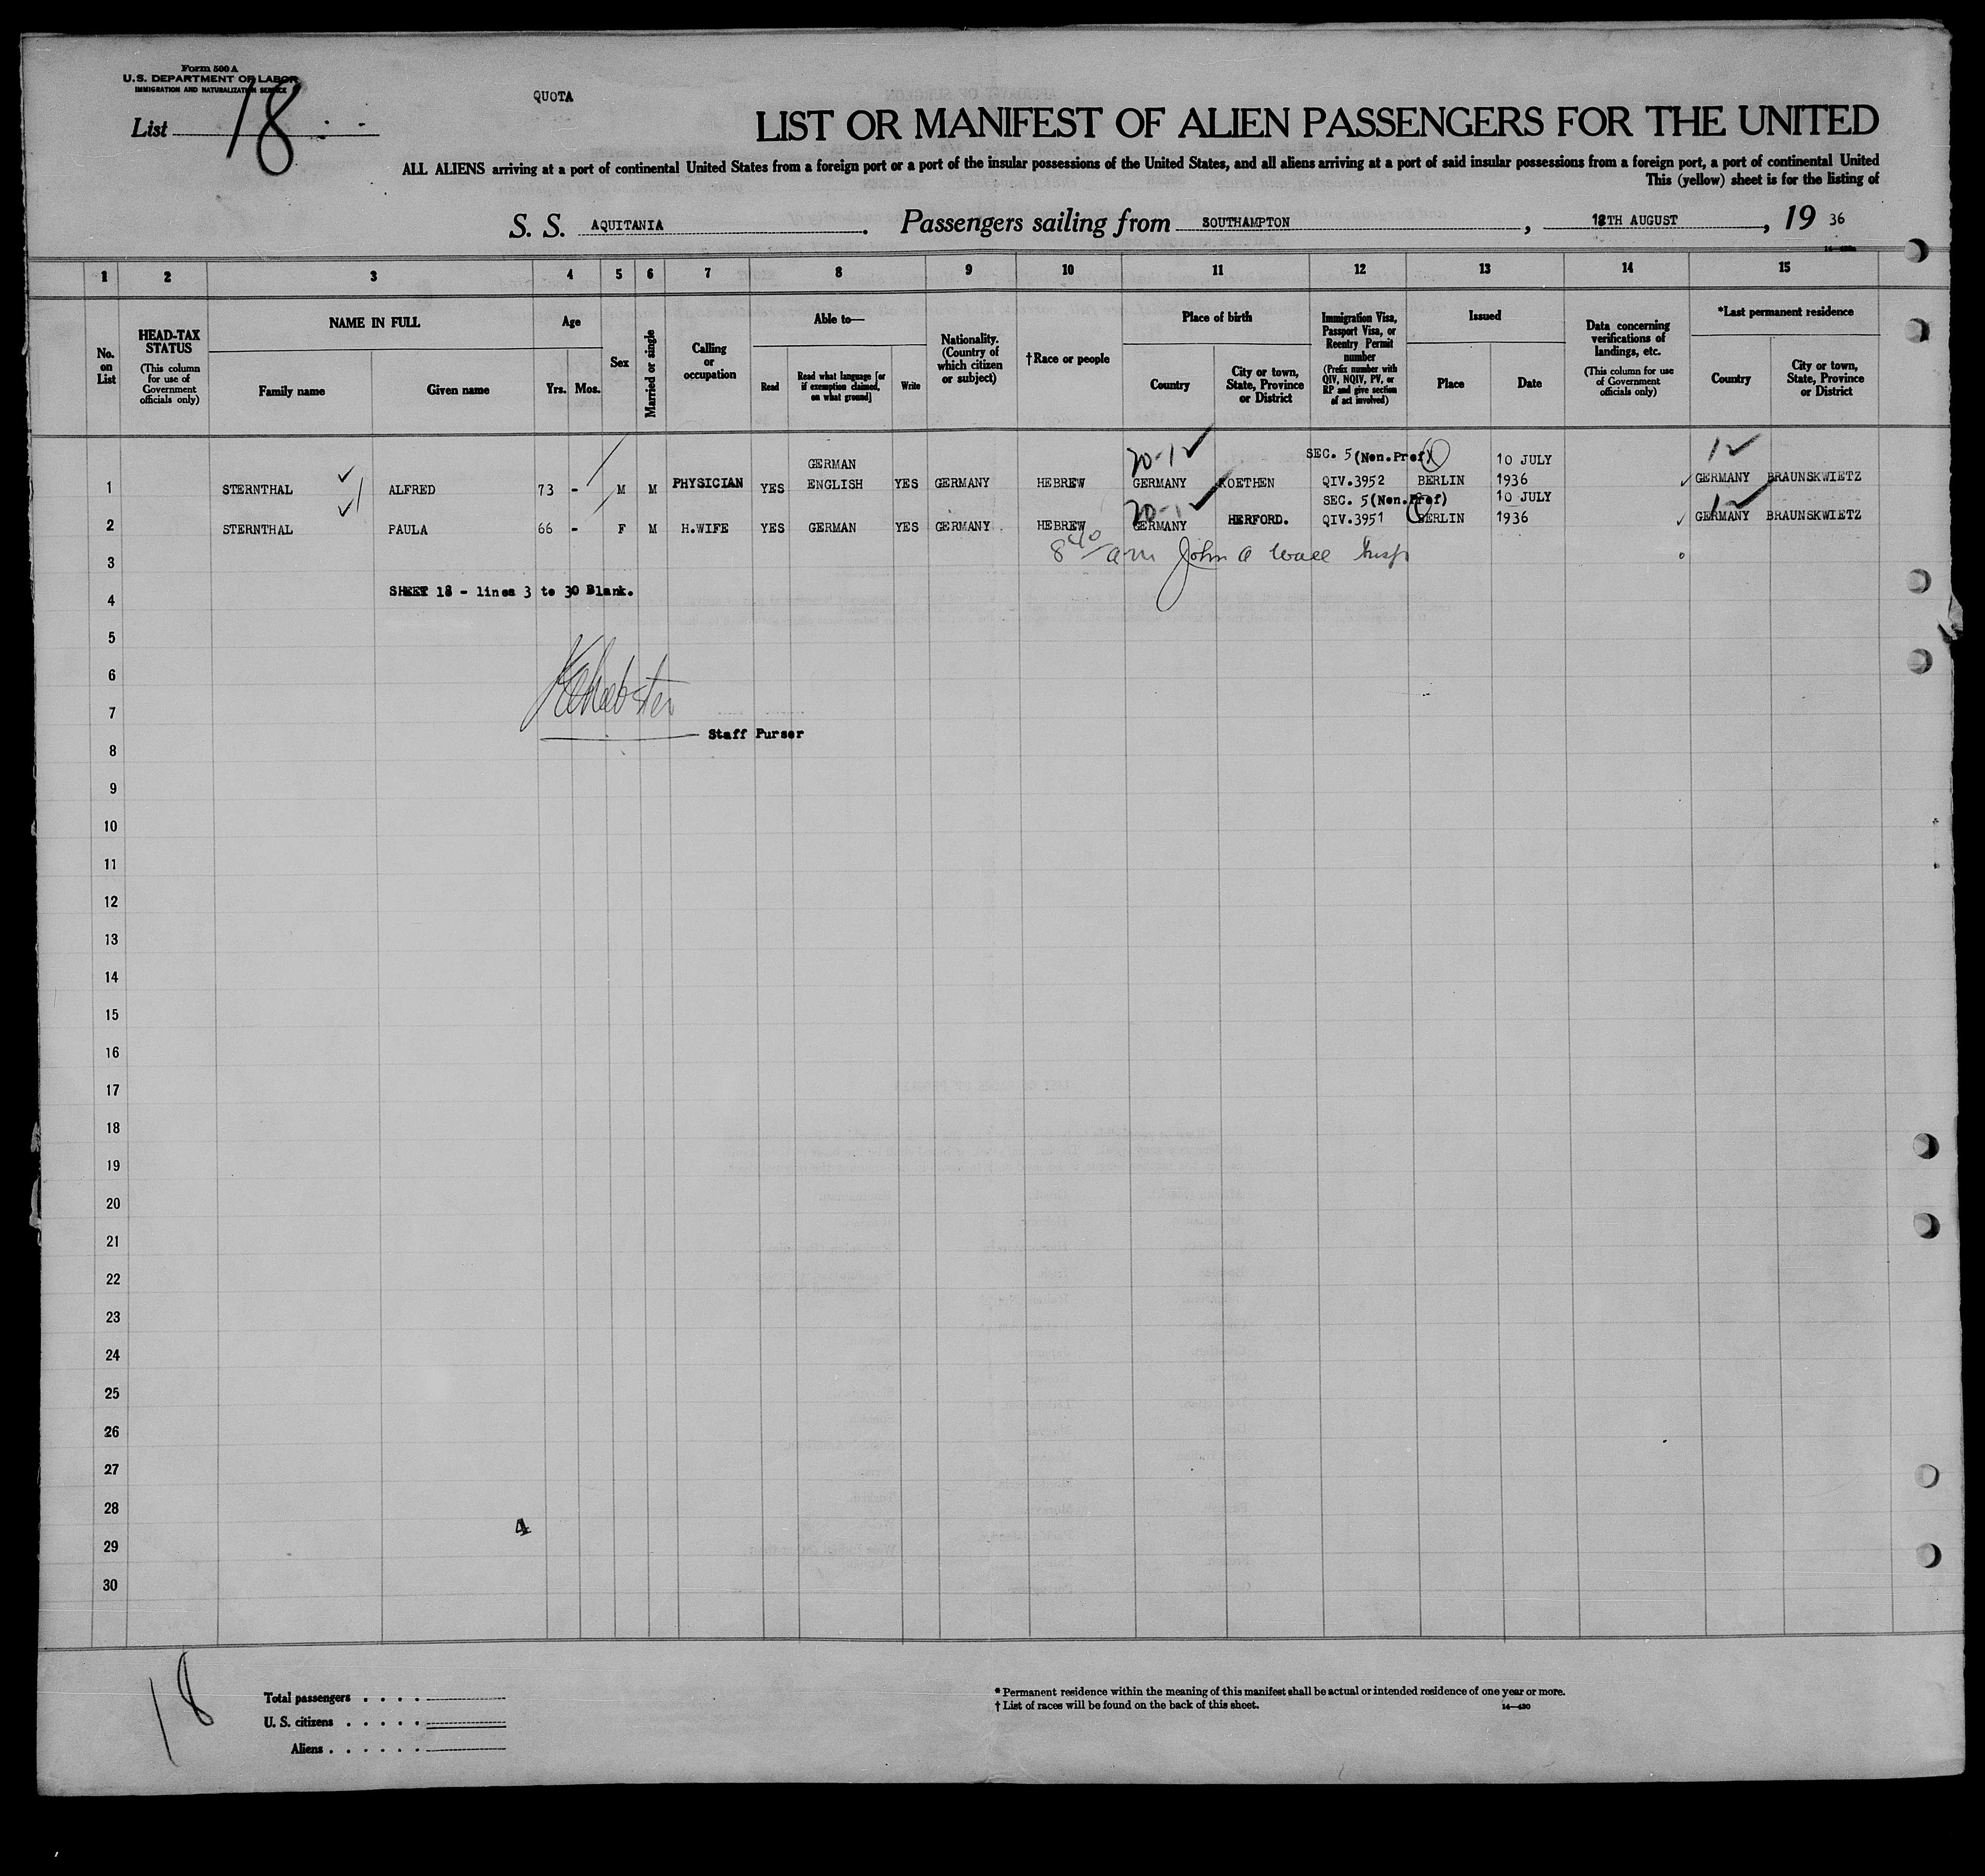 Form 500 A
U.S. DEPARTMENT OF LABOR
IMMIGRATION AND NATURALIZATION SERVICE
List 18
QUOTA
LIST OR MANIFEST OF ALIEN PASSENGERS FOR THE UNITED
ALL ALIENS arriving at a port of continental United States from a foreign port or a port of the insular possessions of the United States, and all aliens arriving at a port of said insular possessions from a foreign port, a port of continental United
This (yellow) sheet is for the listing of
S. S. AQUITANIA. Passengers sailing from SOUTHAMPTON, 12TH AUGUST, 19 36
1 2 3 4 5 6 7 8 9 10 11 12 13 14 15
No. on List
HEAD-TAX STATUS
(This column for use of Government officials only)
NAME IN FULL
Family name
Given name
Age
Yrs. Mos.
Sex
Married or single
Calling or occupation
Able to—
Read
Read what language [or if exemption claimed, on what ground]
Write
Nationality. (Country of which citizen or subject)
†Race or people
Place of birth
Country
City or town, State, Province or District
Immigration Visa, Passport Visa, or Reentry Permit number
(Prefix number with QIV, NQIV, PV, or RP and give section of act involved)
Issued
Place
Date
Data concerning verifications of landings, etc.
(This column for use of Government officials only)
*Last permanent residence
Country
City or town, State, Province or District
20-1 ✓ 1 ✓
GERMAN SEC. 5 (Non.Pref) 10 JULY
1 STERNTHAL ALFRED 73 - M M PHYSICIAN YES ENGLISH YES GERMANY HEBREW GERMANY KOETHEN QIV.3952 BERLIN 1936 GERMANY BRAUNSKWIETZ
20-1 ✓ SEC. 5 (Non.Pref) 10 JULY 1 ✓
2 STERNTHAL PAULA 66 - F M H.WIFE YES GERMAN YES GERMANY. HEBREW GERMANY HERFORD. QIV.3951 BERLIN 1936 GERMANY BRAUNSKWIETZ
3 8 40 am John A Wall Insp
SHEET 18 - lines 3 to 30 Blank.
4
5
6
7
Staff Purser
8
9
10
11
12
13
14
15
16
17
18
19
20
21
22
23
24
25
26
27
28
4
29
30
18
Total passengers . . . .
U. S. citizens . . . . .
Aliens . . . . . .
* Permanent residence within the meaning of this manifest shall be actual or intended residence of one year or more.
† List of races will be found on the back of this sheet.
14—430